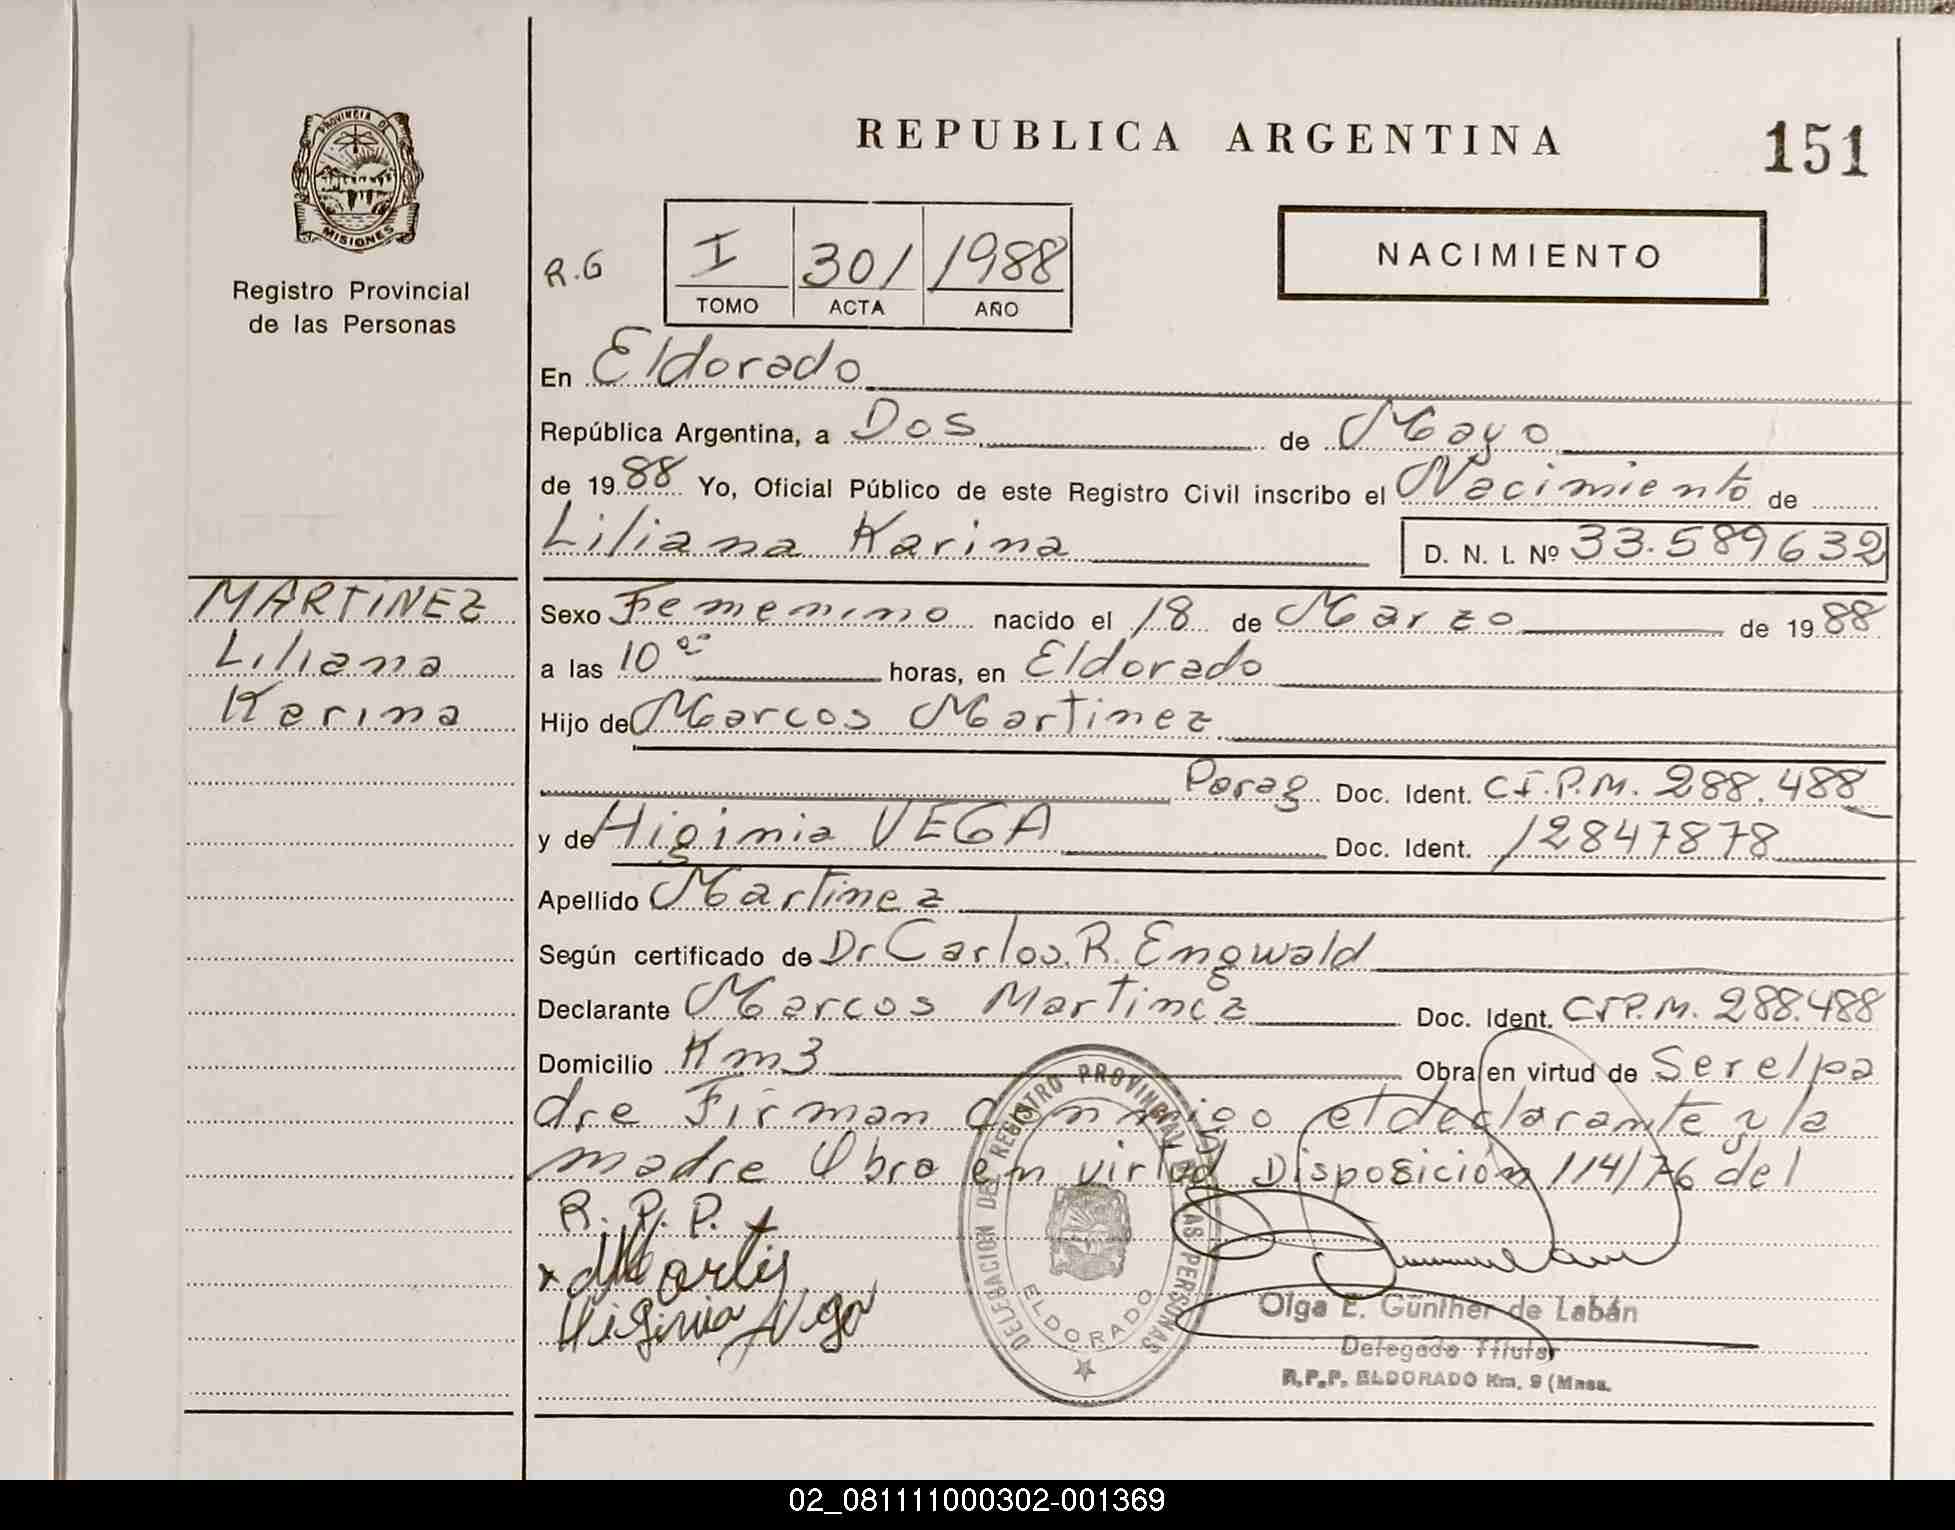 PROVINCIA DE
MISIONES
Registro Provincial
de las Personas
REPUBLICA ARGENTINA
151
NACIMIENTO
R.G
I 301 1988
TOMO ACTA AÑO
En Eldorado
República Argentina, a Dos de Mayo
de 1988 Yo, Oficial Público de este Registro Civil inscribo el Nacimiento de
Liliana Karina D. N. I. Nº 33.589632
MARTINEZ
Liliana
Karina
Sexo Femenino nacido el 18 de Marzo de 1988
a las 10 00 horas, en Eldorado
Hijo de Marcos Martinez
Parag Doc. Ident. C.I.P.M. 288.488
y de Higinia VEGA Doc. Ident. 12847878
Apellido Martinez
Según certificado de Dr Carlos R. Engwald
Declarante Marcos Martinez Doc. Ident. CIP.M. 288.488
Domicilio Km3 Obra en virtud de Ser el pa
dre Firman conmigo el declarante y la
madre Obra en virtud Disposición 114/76 del
R. P. P.
x
Higinia Vega
DELEGACION DEL REGISTRO PROVINCIAL DE LAS PERSONAS
ELDORADO
Olga E. Günther de Labán
Delegada Titular
R.P.P. ELDORADO Km. 9 (Mnes.
02_081111000302-001369